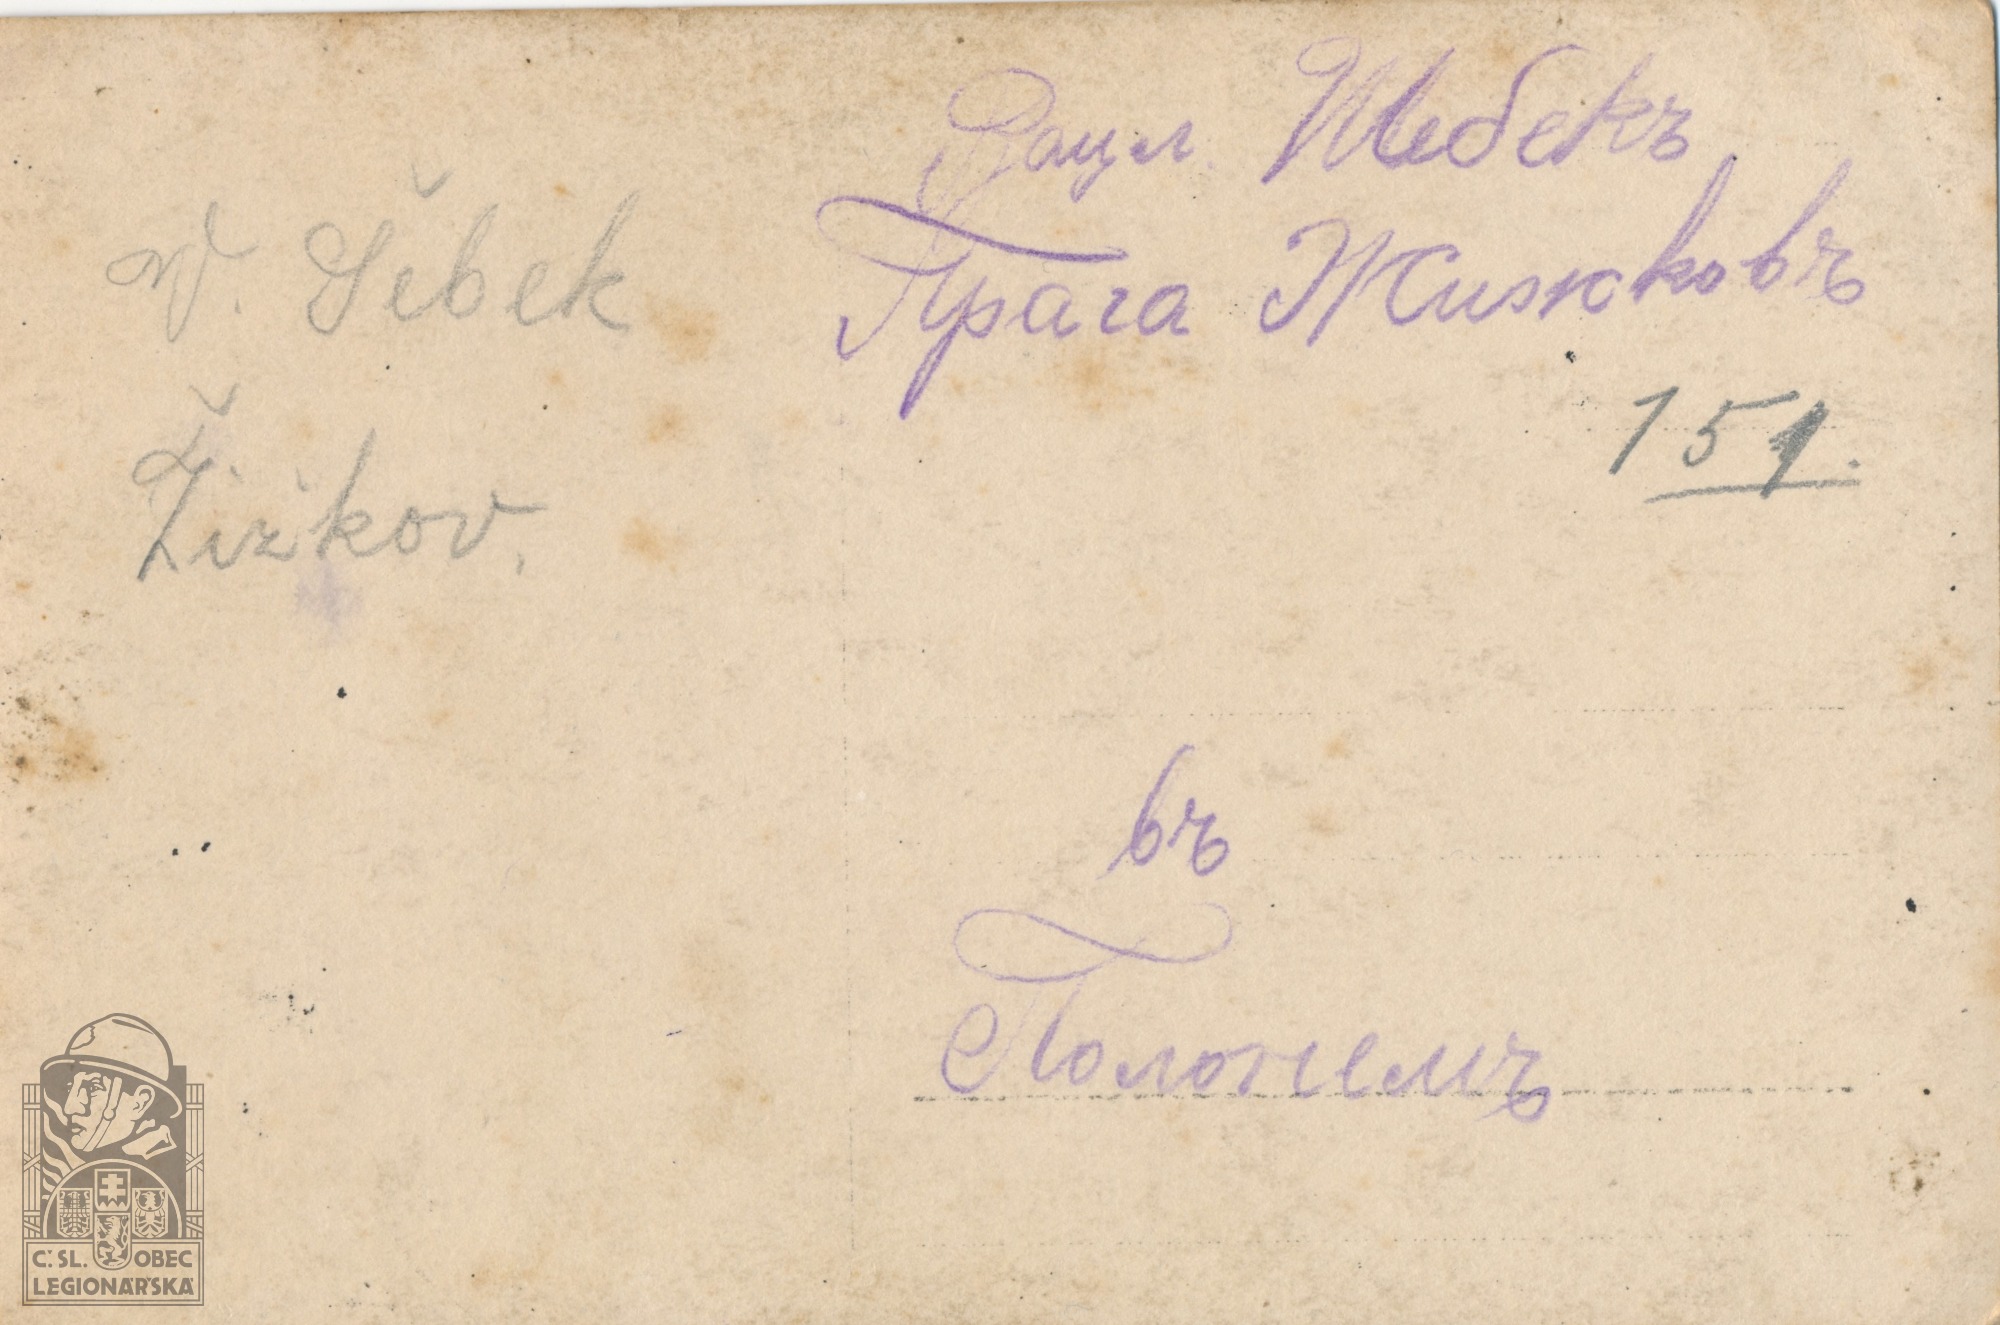 V. Šebek
Žižkov.
Вацл. Шебекъ
Прага Жижковъ
151.
въ
Полонемъ
Č.SL. OBEC
LEGIONÁŘSKÁ